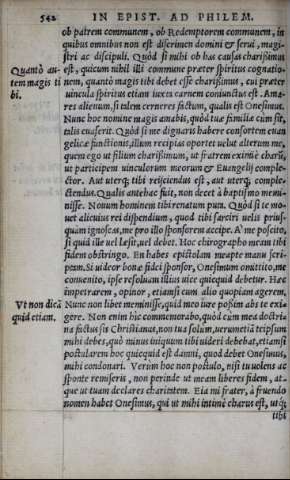 542 IN EPIST. AD PHILEM.
ob patrem communem, ob Redemptorem communem, in
quibus omnibus non est discrimen domini & serui, magi-
stri ac discipuli. Quòd si mihi ob has causas charißimus
Quantò au- est, quicum nihil illi commune præter spiritus cognatio-
tem magis ti nem, quantò magis tibi debet esse charißimus, cui præter
bi. vincula spiritus etiam iuxta carnem coniunctus est. Ama-
res alienum, si talem cerneres factum, qualis est Onesimus.
Nunc hoc nomine magis amabis, quòd tuæ familiæ cùm sit,
talis euaserit. Quòd si me dignaris habere consortem euan
gelicæ functionis, illum recipias oportet velut alterum me,
quem ego ut filium charißimum, ut fratrem eximiè charũ,
ut participem uinculorum meorum & Euangelij comple-
ctor. Aut uterq; tibi reijciendus est, aut uterq; comple-
ctendus. Qualis antehac fuit, non decet à baptismo memi-
nisse. Nouum hominem tibi renatum puta. Quòd si te mo-
uet alicuius rei dispendium, quod tibi sarciri uelis prius-
quàm ignoscas, me pro illo sponsorem accipe. A' me poscito,
si quid ille uel læsit, uel debet. Hoc chirographo meam tibi
fidem obstringo. En habes epistolam meapte manu scri-
ptam. Si uideor bonæ fidei sponsor, Onesimum omittito, me
conuenito, ipse resoluam illius uice quicquid debetur. Hæc
impetrarem, opinor, etiamsi cum alio quopiam agerem.
Vt non dicã Nunc non libet meminisse, quid meo iure poßim abs te exi-
quid etiam. gere. Non enim hîc commemorabo, quòd cùm mea doctri-
na factus sis Christianus, non tua solum, uerumetiã teipsum
mihi debes, quò minus iniquum tibi uideri debebat, etiamsi
postularem hoc quicquid est damni, quod debet Onesimus,
mihi condonari. Verùm hoc non postulo, nisi tu uolens ac
sponte remiseris, non perinde ut meam liberes fidem, at-
que ut tuam declares charitatem. Eia mi frater, à fruendo
nomen habet Onesimus, qui ut mihi intimè charus est, utq;
tibi